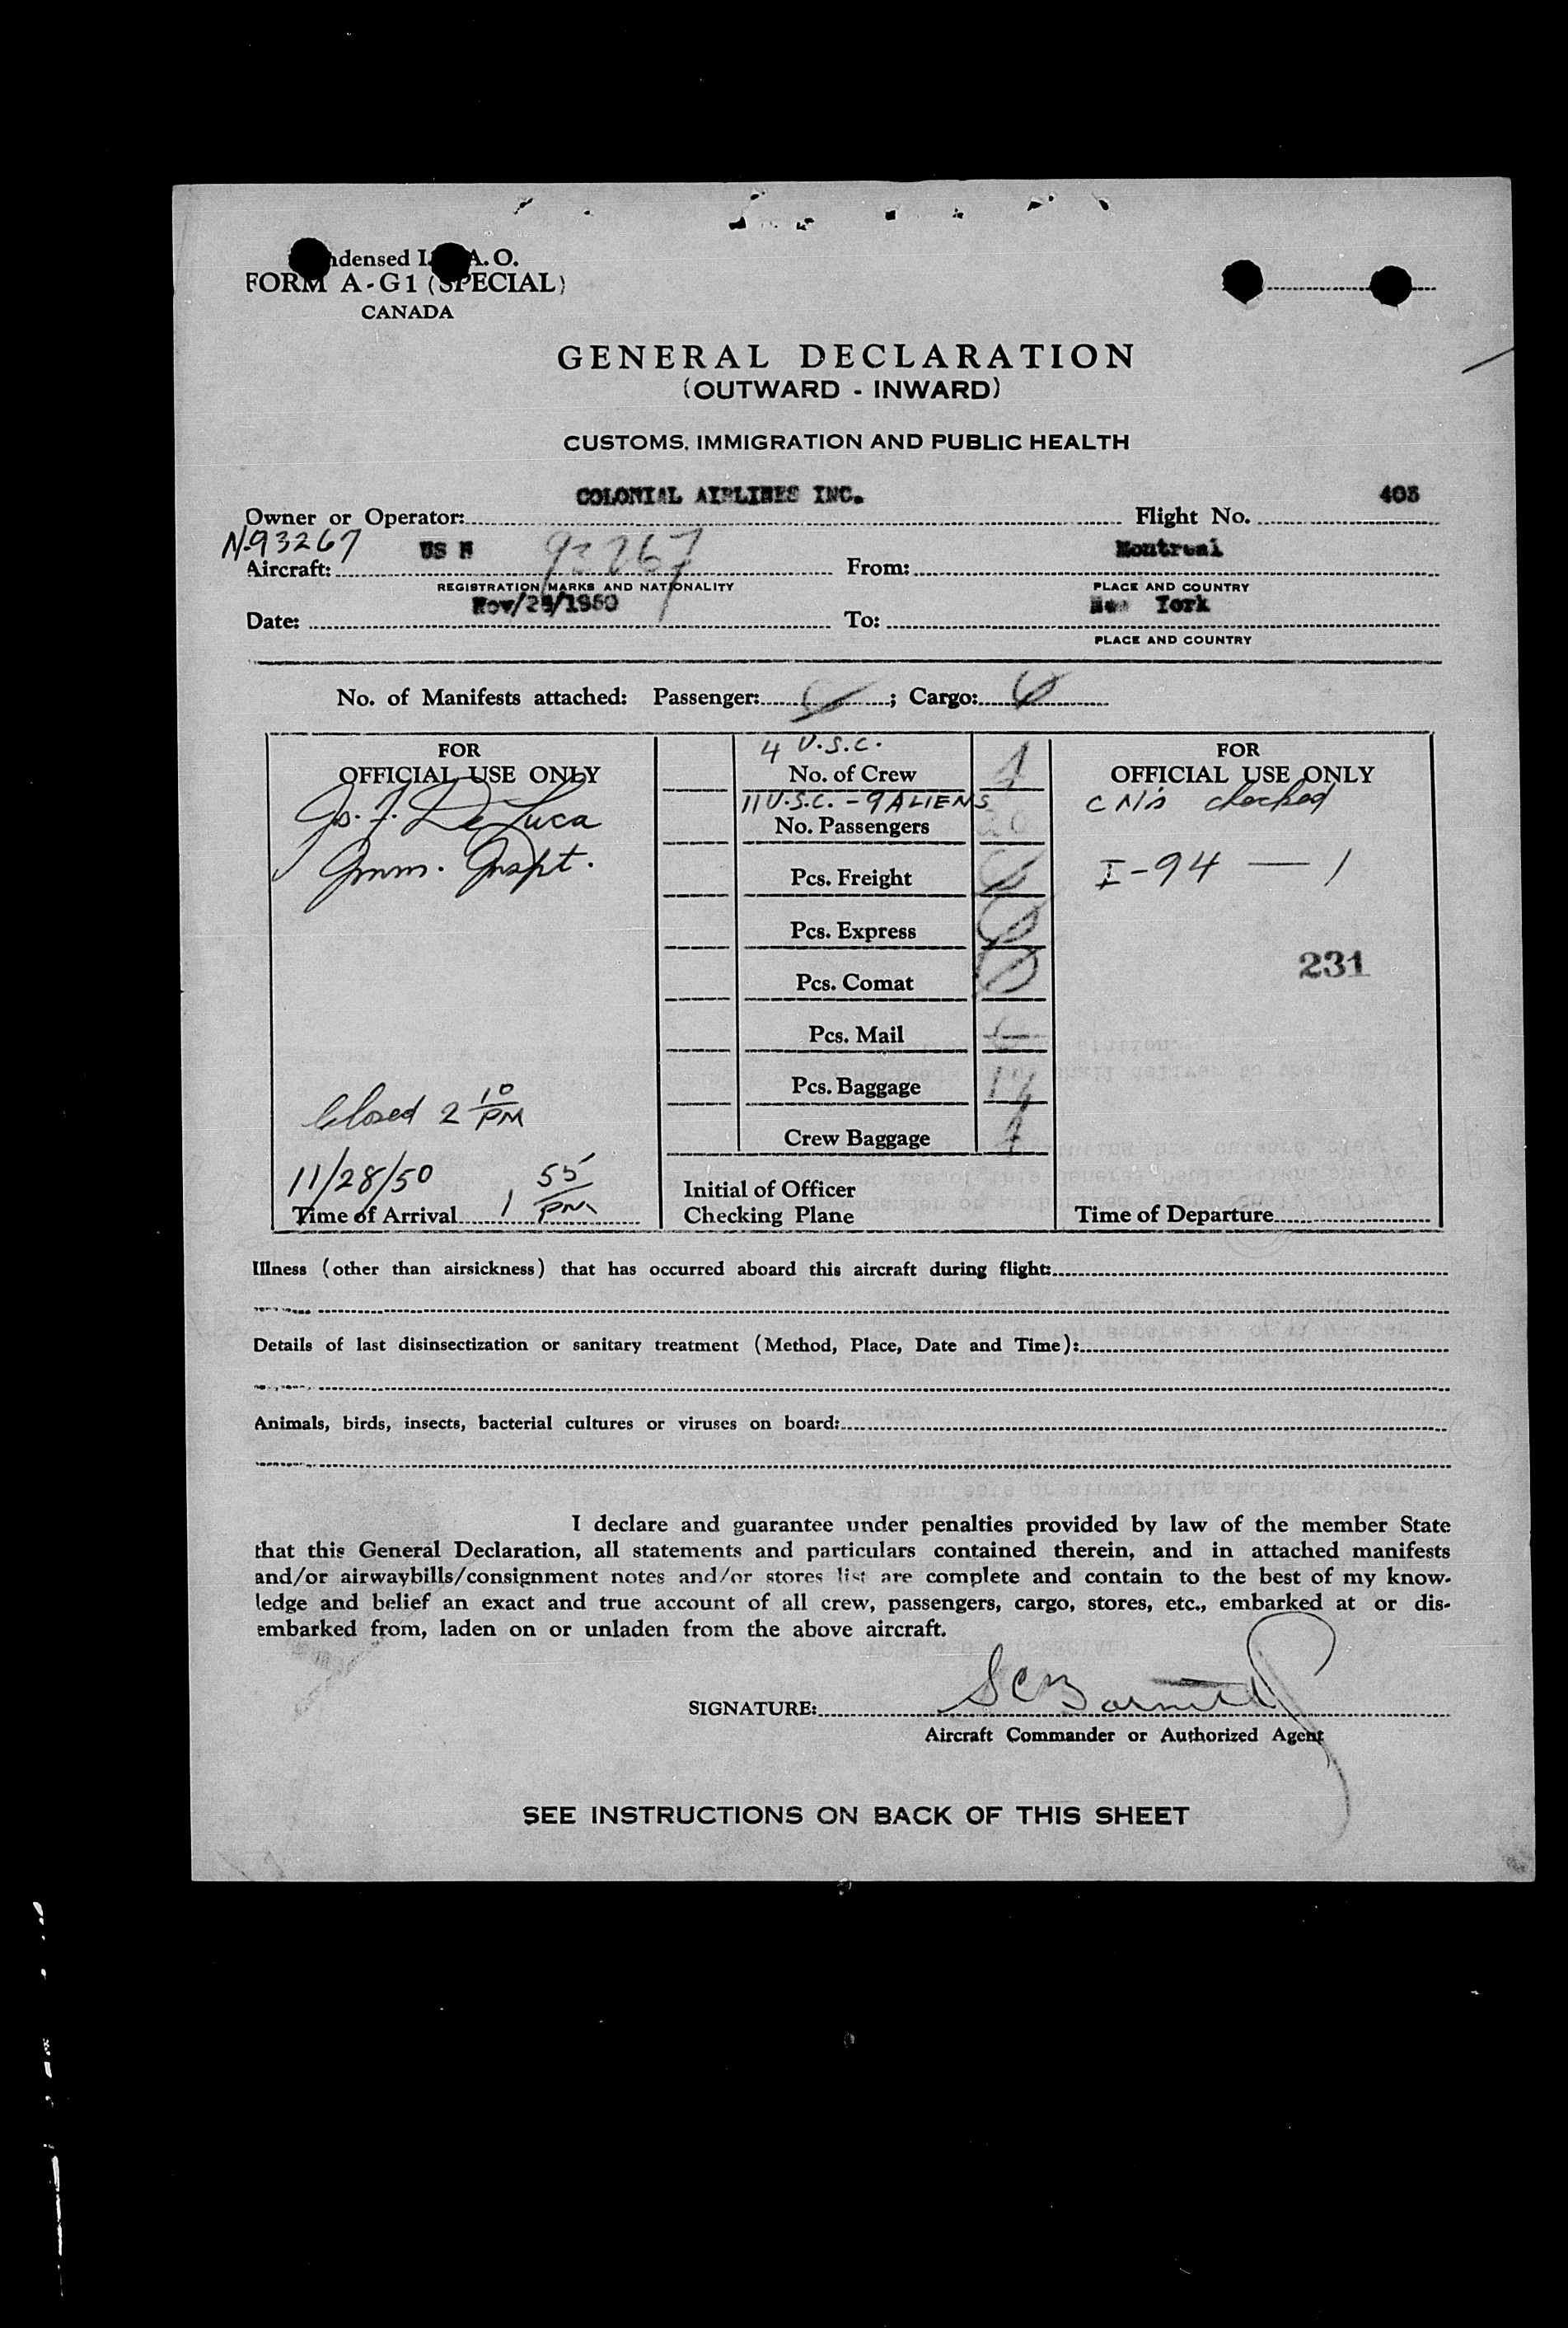 ndensed I. A. O.
FORM A-G1 (SPECIAL)
CANADA
GENERAL DECLARATION
(OUTWARD - INWARD)
CUSTOMS, IMMIGRATION AND PUBLIC HEALTH
COLONIAL AIRLINES INC. 403
Owner or Operator: Flight No.
N-93267 US N 93267 Montreal
Aircraft: From:
REGISTRATION MARKS AND NATIONALITY PLACE AND COUNTRY
Nov/28/1950 New York
Date: To:
PLACE AND COUNTRY
No. of Manifests attached: Passenger: ; Cargo:
FOR
OFFICIAL USE ONLY
Jos. J. De Luca
Imm. Inspt.
Closed 2 10 PM
11/28/50 1 55 PM
Time of Arrival
4 U.S.C.
No. of Crew 4
11 U.S.C. - 9 ALIENS
No. Passengers 20
Pcs. Freight
Pcs. Express
Pcs. Comat
Pcs. Mail
Pcs. Baggage 14
Crew Baggage 4
Initial of Officer
Checking Plane
FOR
OFFICIAL USE ONLY
checked
I-94 — 1
231
Time of Departure
Illness (other than airsickness) that has occurred aboard this aircraft during flight:
Details of last disinsectization or sanitary treatment (Method, Place, Date and Time):
Animals, birds, insects, bacterial cultures or viruses on board:
I declare and guarantee under penalties provided by law of the member State
that this General Declaration, all statements and particulars contained therein, and in attached manifests
and/or airwaybills/consignment notes and/or stores list are complete and contain to the best of my know-
ledge and belief an exact and true account of all crew, passengers, cargo, stores, etc., embarked at or dis-
embarked from, laden on or unladen from the above aircraft.
SIGNATURE:
Aircraft Commander or Authorized Agent
SEE INSTRUCTIONS ON BACK OF THIS SHEET